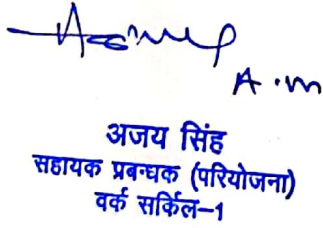 A.m
अजय सिंह
सहायक प्रबन्धक (परियोजना)
वर्क सर्किल-1